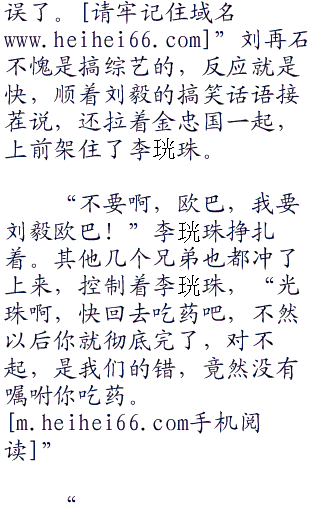 误了。[请牢记住域名
www.heihei66.com]”刘再石
不愧是搞综艺的，反应就是
快，顺着刘毅的搞笑话语接
茬说，还拉着金忠国一起，
上前架住了李珖珠。
“不要啊，欧巴，我要
刘毅欧巴！”李珖珠挣扎
着。其他几个兄弟也都冲了
上来，控制着李珖珠，“光
珠啊，快回去吃药吧，不然
以后你就彻底完了，对不
起，是我们的错，竟然没有
嘱咐你吃药。
[m.heihei66.com手机阅
读]”
“